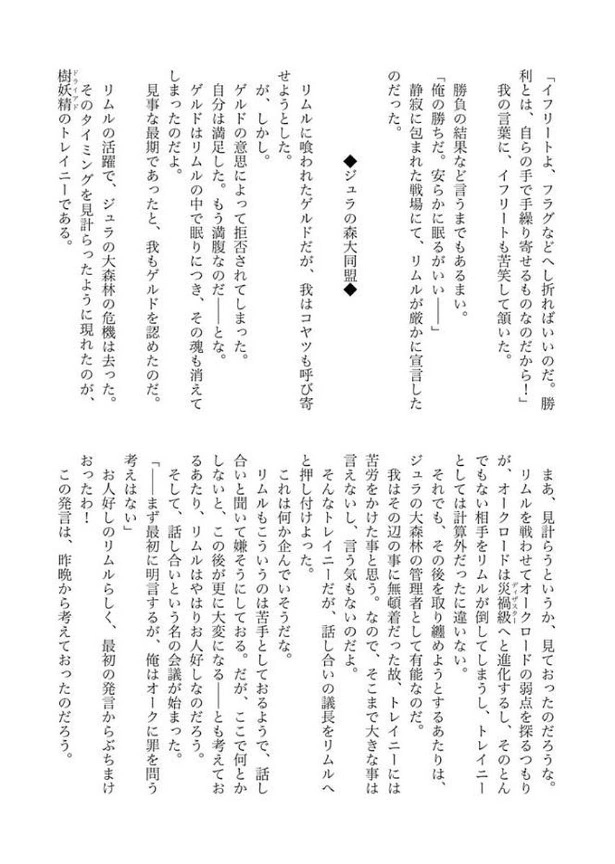 「イフリートよ、フラグなどへし折ればいいのだ。勝
利とは、自らの手で手繰り寄せるものなのだから！」
我の言葉に、イフリートも苦笑して頷いた。
勝負の結果など言うまでもあるまい。
「俺の勝ちだ。安らかに眠るがいい――」
静寂に包まれた戦場にて、リムルが厳かに宣言した
のだった。
◆ジュラの森大同盟◆
リムルに喰われたゲルドだが、我はコヤツも呼び寄
せようとした。
が、しかし。
ゲルドの意思によって拒否されてしまった。
自分は満足した。もう満腹なのだ――とな。
ゲルドはリムルの中で眠りにつき、その魂も消えて
しまったのだよ。
見事な最期であったと、我もゲルドを認めたのだ。
リムルの活躍で、ジュラの大森林の危機は去った。
そのタイミングを見計らったように現れたのが、
樹妖精のトレイニーである。
ドライアド
まあ、見計らうというか、見ておったのだろうな。
リムルを戦わせてオークロードの弱点を探るつもり
が、オークロードは災禍級へと進化するし、そのとん
ディザスター
でもない相手をリムルが倒してしまうし、トレイニー
としては計算外だったに違いない。
それでも、その後を取り纏めようとするあたりは、
ジュラの大森林の管理者として有能なのだ。
我はその辺の事に無頓着だった故、トレイニーには
苦労をかけた事と思う。なので、そこまで大きな事は
言えないし、言う気もないのよ。
そんなトレイニーだが、話し合いの議長をリムルへ
と押し付けよった。
これは何か企んでいそうだな。
リムルもこういうのは苦手としておるようで、話し
合いと聞いて嫌そうにしておる。だが、ここで何とか
しないと、この後が更に大変になる――とも考えてお
るあたり、リムルはやはりお人好しなのだろう。
そして、話し合いという名の会議が始まった。
「――まず最初に明言するが、俺はオークに罪を問う
考えはない」
お人好しのリムルらしく、最初の発言からぶちまけ
おったわ！
この発言は、昨晩から考えておったのだろう。